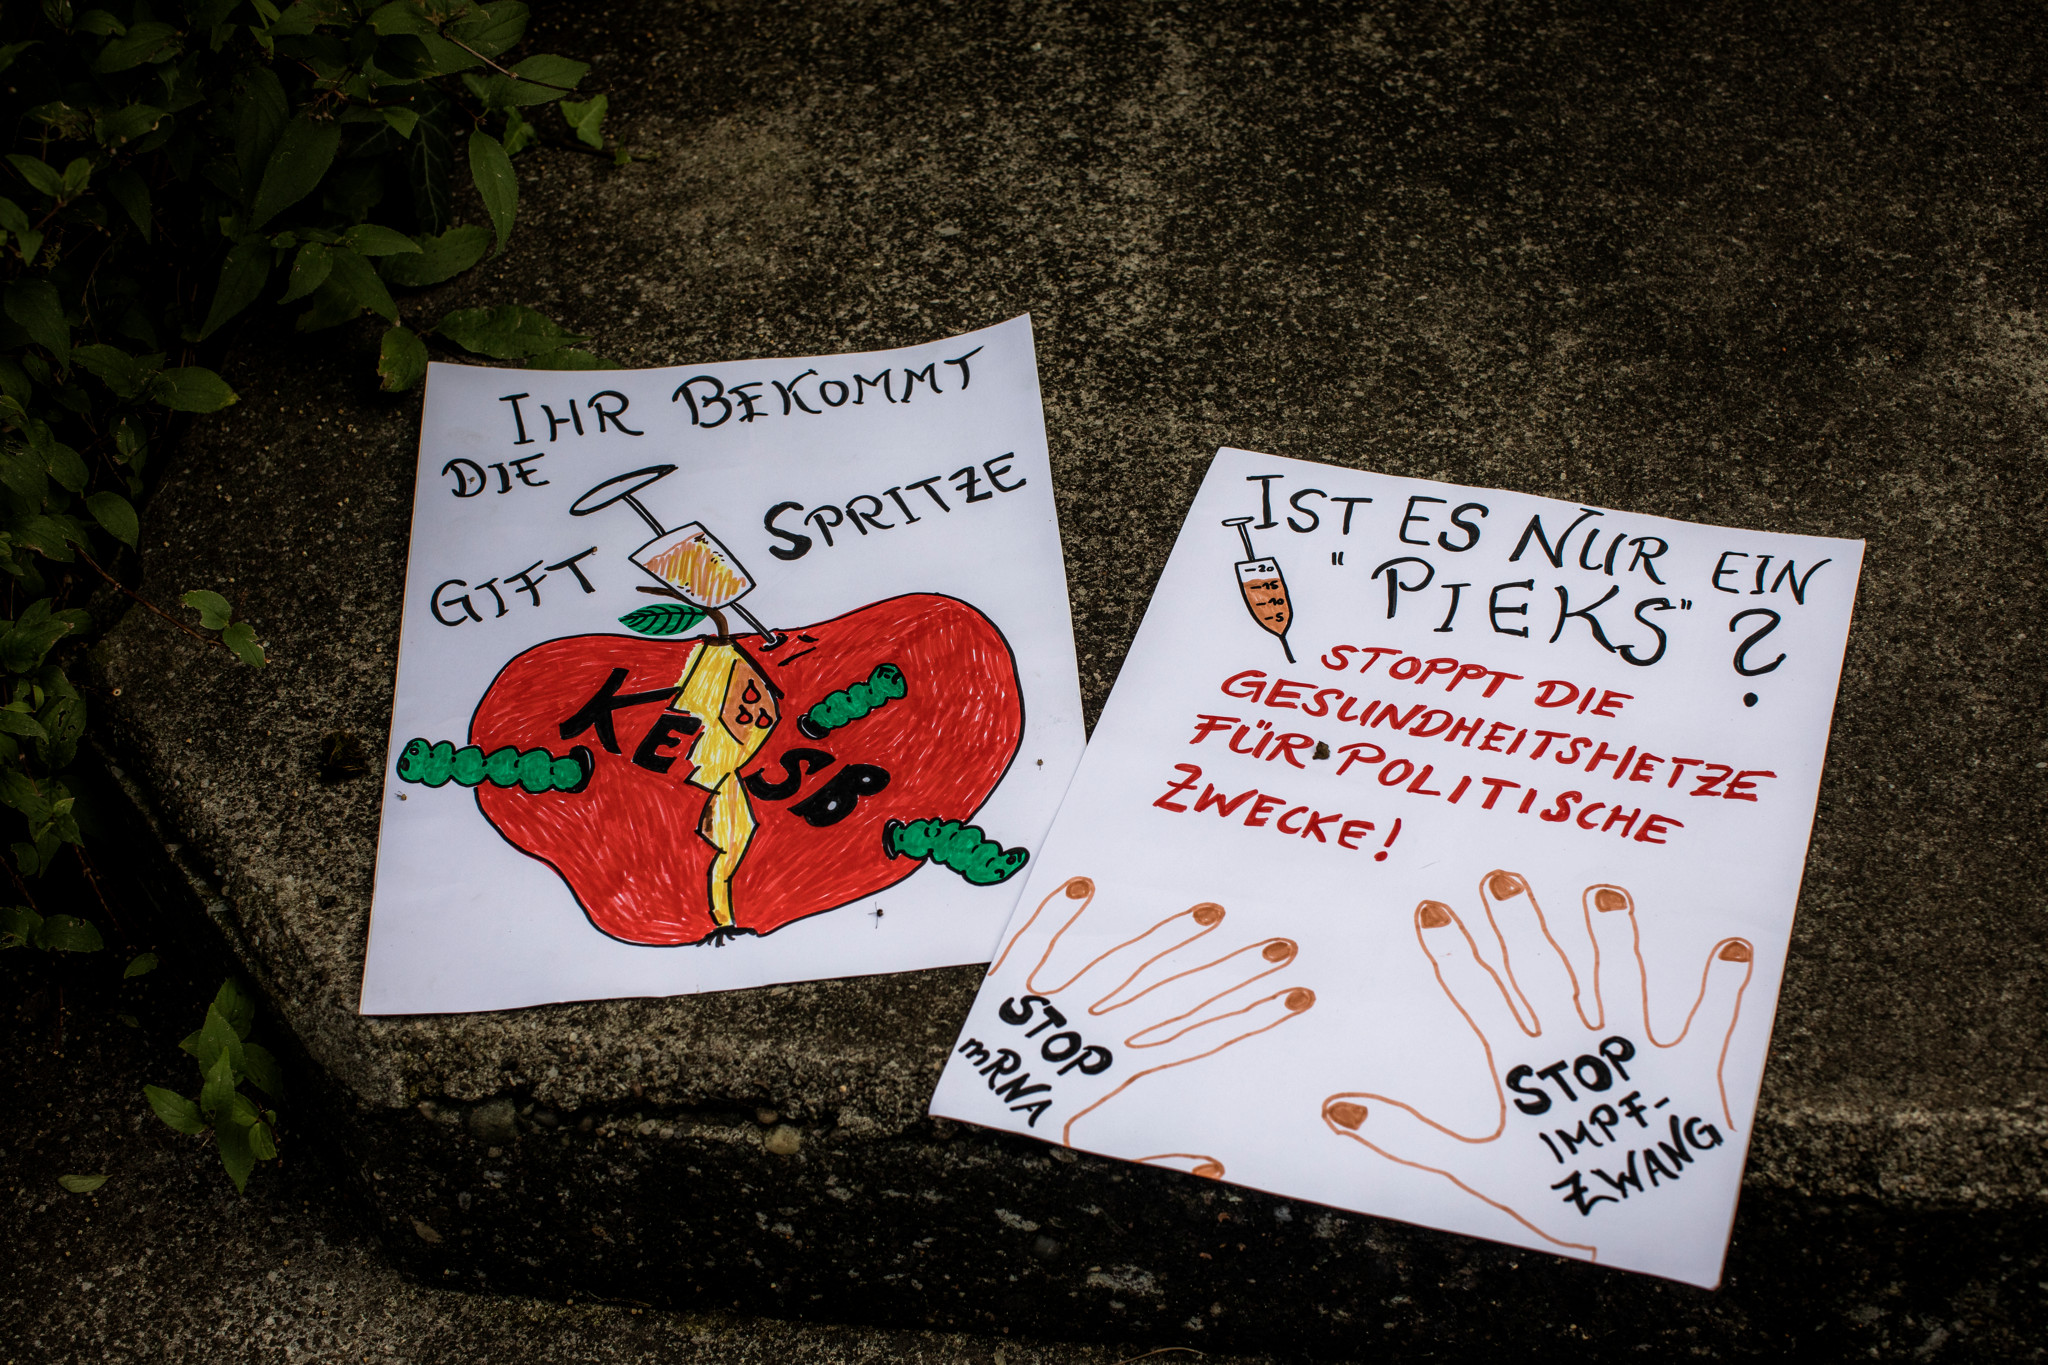 IHR BEKOMMT
DIE
GIFT SPRITZE
KESB
IST ES NUR EIN
"PIEKS"?
-20
-15
-10
-5
STOPPT DIE
GESUNDHEITSHETZE
FÜR POLITISCHE
ZWECKE!
STOP
mRNA
STOP
IMPF-
ZWANG